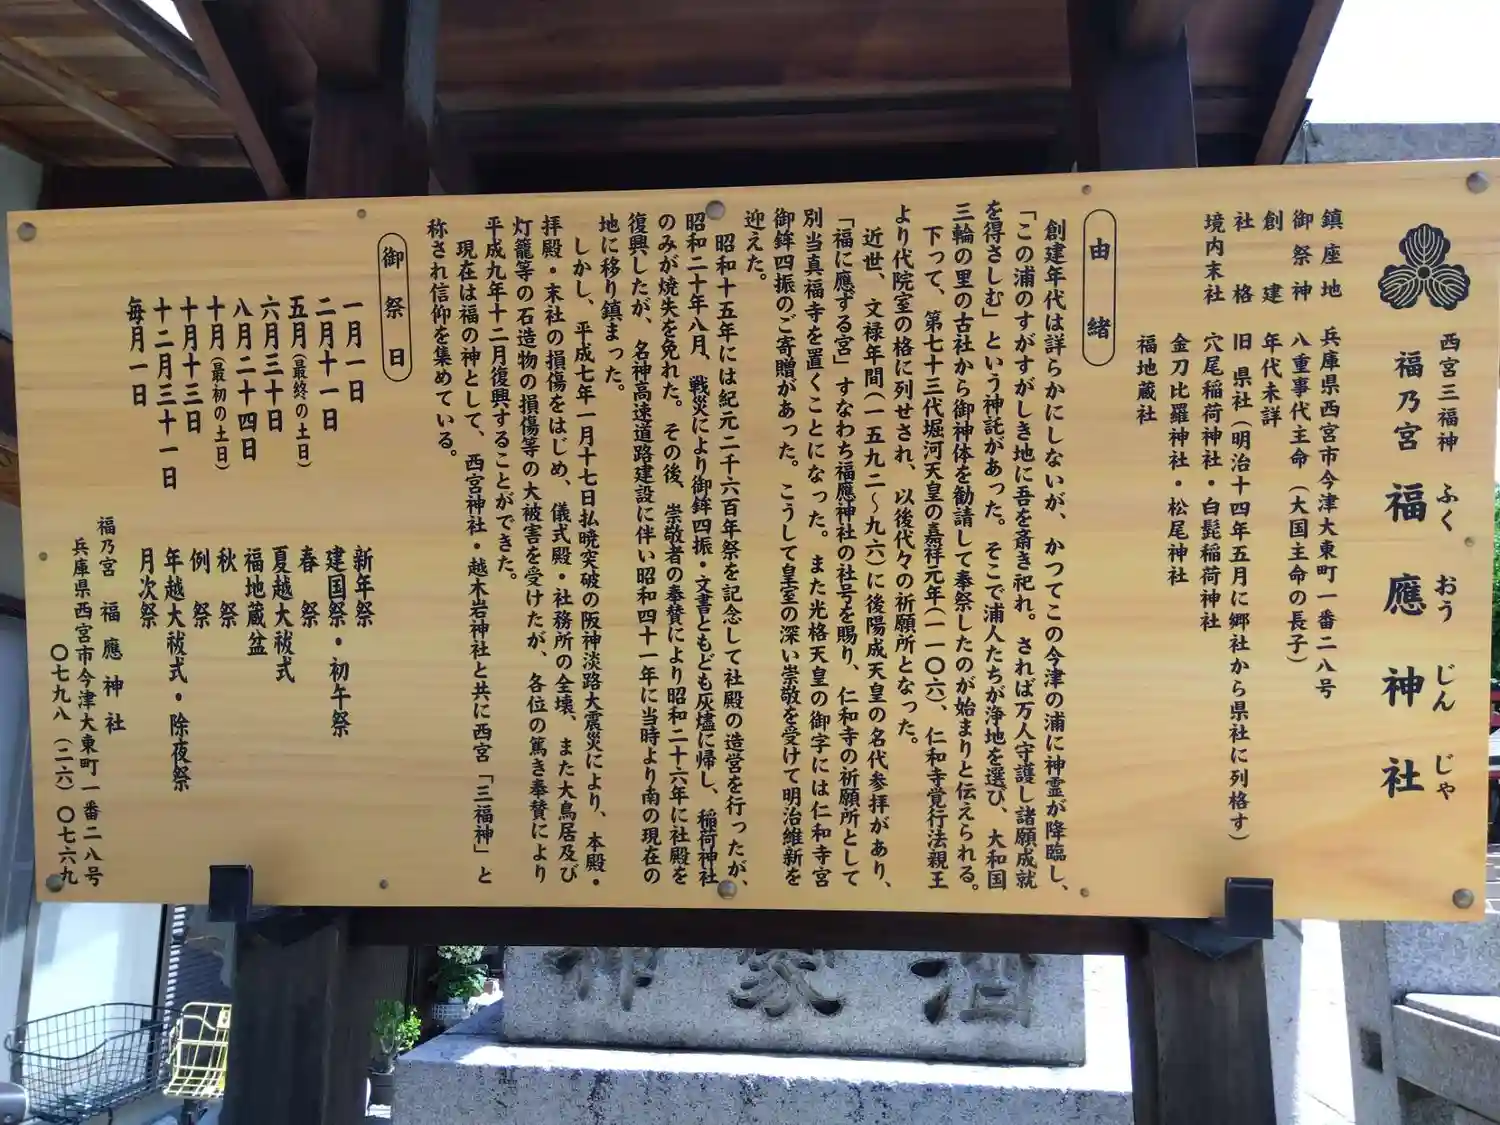 西宮三福神
福乃宮 福應神社
ふく おう じん じゃ
鎮座地 兵庫県西宮市今津大東町一番二八号
御祭神 八重事代主命（大国主命の長子）
創建 年代未詳
社格 旧県社（明治十四年五月に郷社から県社に列格す）
境内末社 穴尾稲荷神社・白髭稲荷神社
金刀比羅神社・松尾神社
福地蔵社
由緒
創建年代は詳らかにしないが、かつてこの今津の浦に神霊が降臨し、
「この浦のすがすがしき地に吾を斎き祀れ。されば万人守護し諸願成就
を得さしむ」という神託があった。そこで浦人たちが浄地を選び、大和国
三輪の里の古社から御神体を勧請して奉祭したのが始まりと伝えられる。
下って、第七十三代堀河天皇の嘉祥元年（一一〇六）、仁和寺覚行法親王
より代院室の格に列せされ、以後代々の祈願所となった。
近世、文禄年間（一五九二～九六）に後陽成天皇の名代参拝があり、
「福に應ずる宮」すなわち福應神社の社号を賜り、仁和寺の祈願所として
別当真福寺を置くことになった。また光格天皇の御字には仁和寺宮
御鉾四振のご寄贈があった。こうして皇室の深い崇敬を受けて明治維新を
迎えた。
昭和十五年には紀元二千六百年祭を記念して社殿の造営を行ったが、
昭和二十年八月、戦災により御鉾四振・文書ともども灰燼に帰し、稲荷神社
のみが焼失を免れた。その後、崇敬者の奉賛により昭和二十六年に社殿を
復興したが、名神高速道路建設に伴い昭和四十一年に当時より南の現在の
地に移り鎮まった。
しかし、平成七年一月十七日払暁突破の阪神淡路大震災により、本殿・
拝殿・末社の損傷をはじめ、儀式殿・社務所の全壊、また大鳥居及び
灯籠等の石造物の損傷等の大被害を受けたが、各位の篤き奉賛により
平成九年十二月復興することができた。
現在は福の神として、西宮神社・越木岩神社と共に西宮「三福神」と
称され信仰を集めている。
御祭日
一月一日 新年祭
二月十一日 建国祭・初午祭
五月（最終の土日） 春祭
六月三十日 夏越大祓式
八月二十四日 福地蔵盆
十月（最初の土日） 秋祭
十月十三日 例祭
十二月三十一日 年越大祓式・除夜祭
毎月一日 月次祭
福乃宮 福應神社
兵庫県西宮市今津大東町一番二八号
〇七九八（二六）〇七六九
酒家神